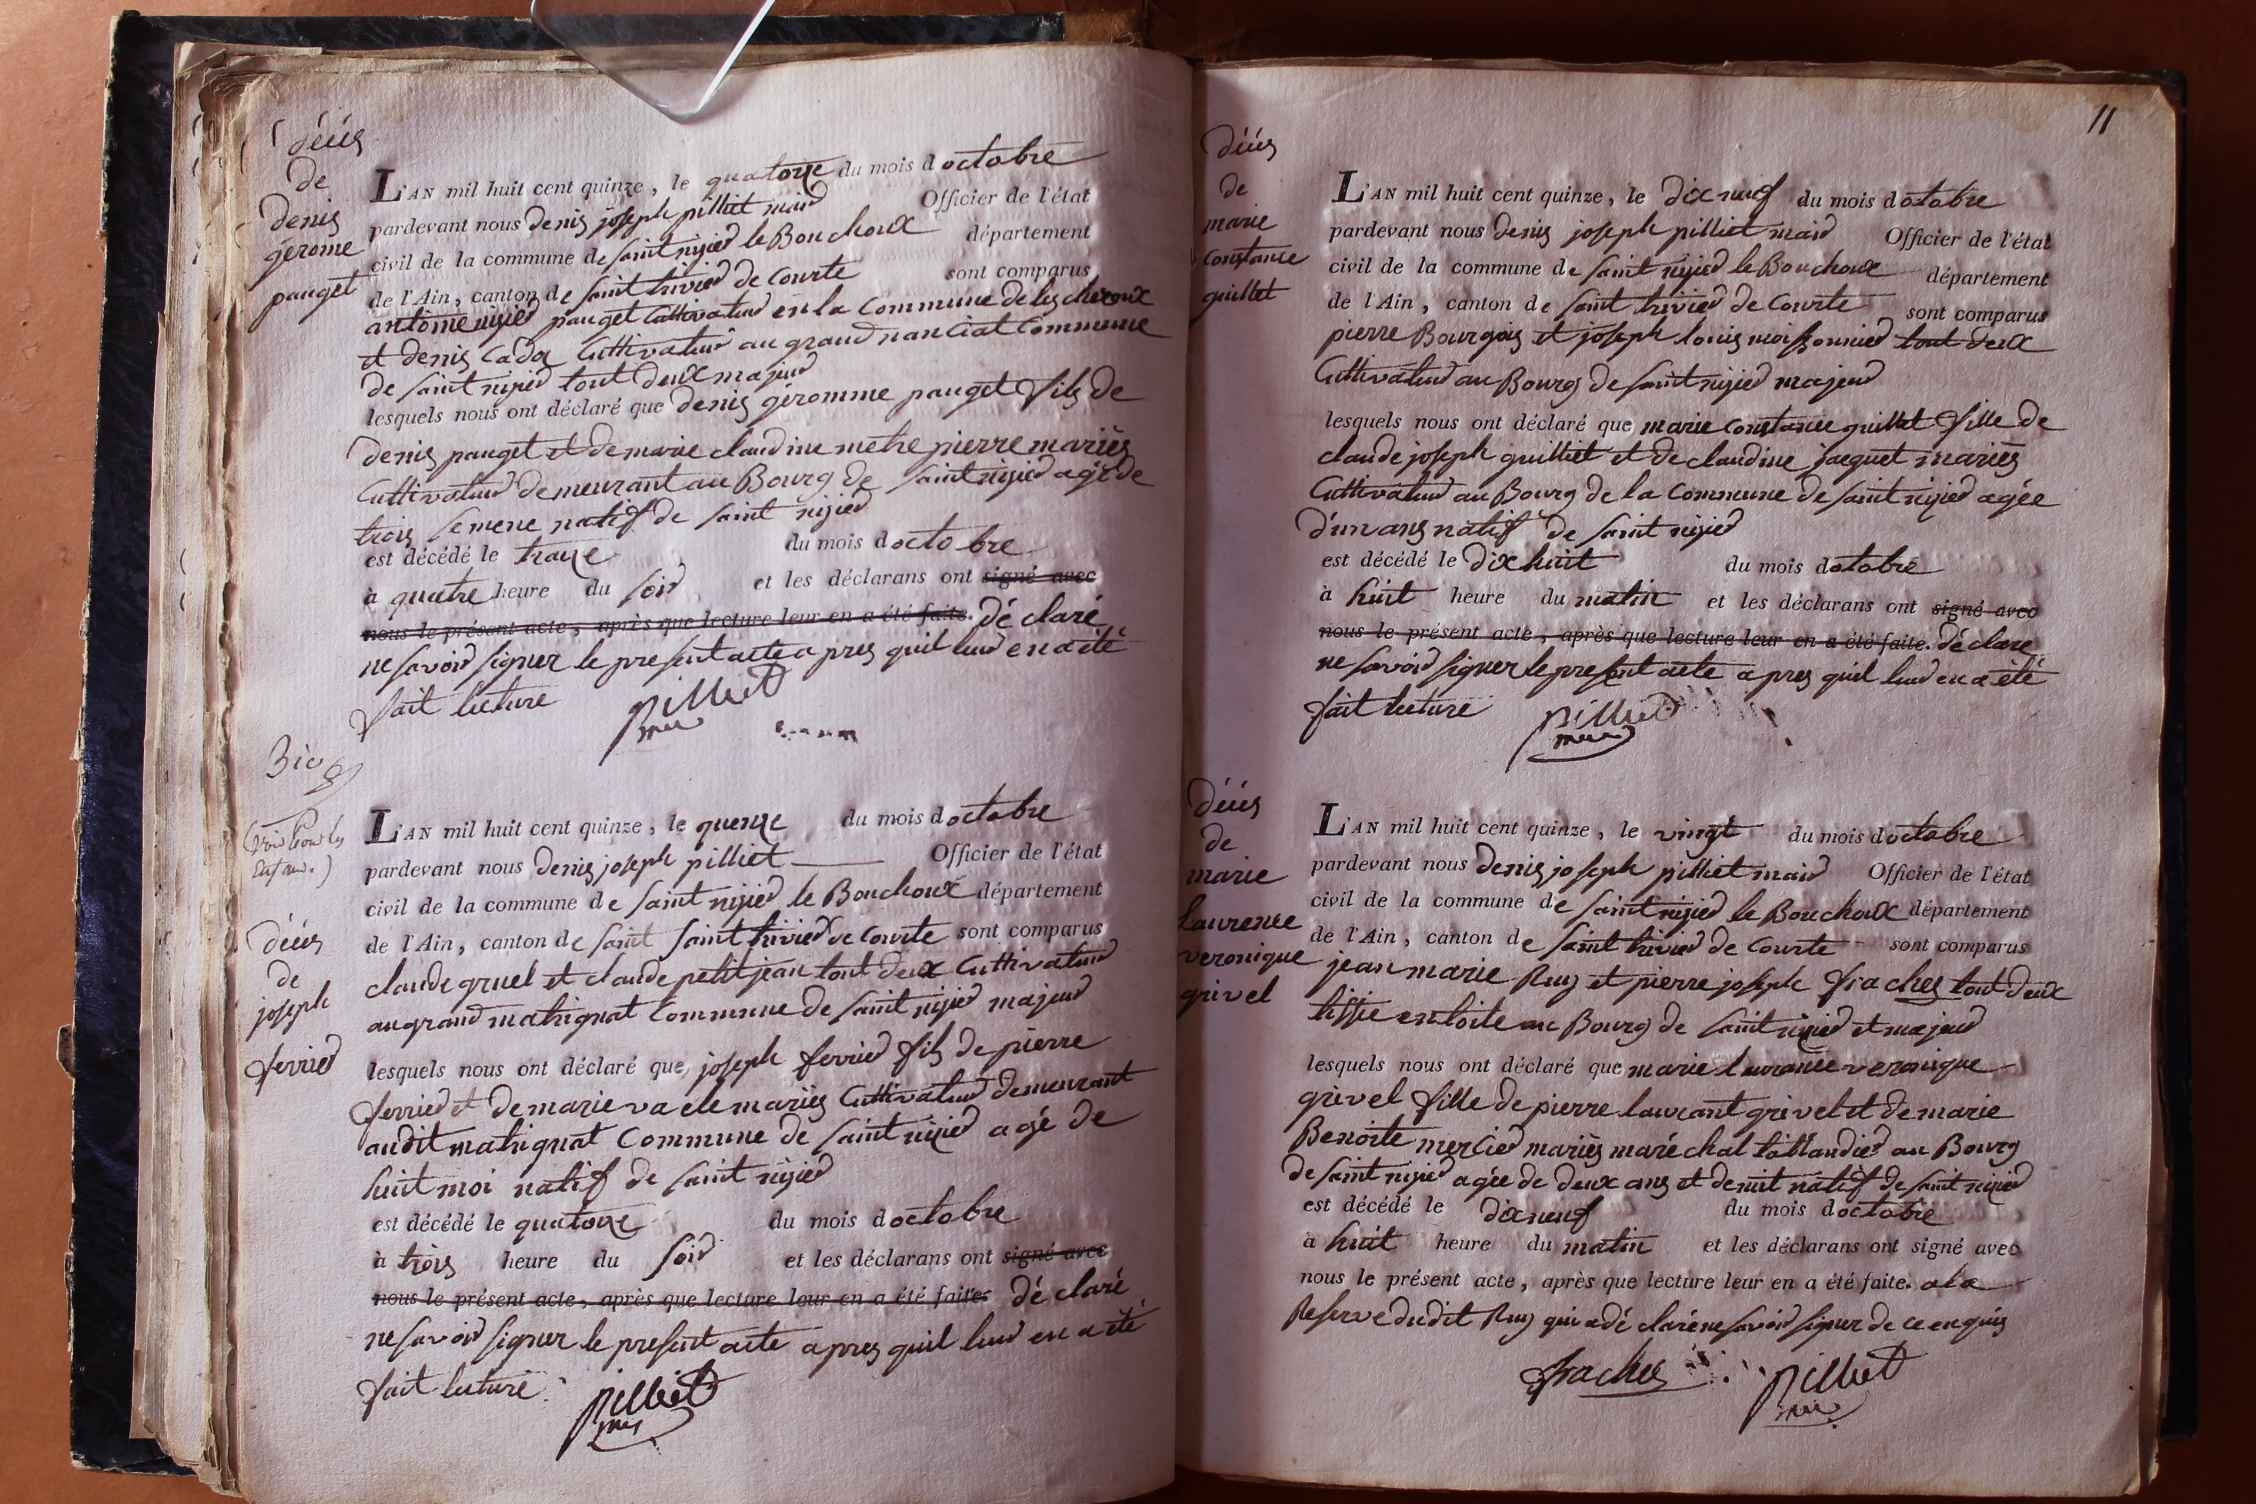 décès
de
denis
gerome
pauget
L'AN mil huit cent quinze, le quatorze du mois d octobre
pardevant nous denis joseph pilliet maire Officier de l'état
civil de la commune de saint nizier le Bouchoux département
de l'Ain, canton de saint trivier de Courte sont comparus
antoine nizier pauget Cultivateur en la Commune de lescheroux
et denis Cadoz Cultivateur au grand nanciat Commune
de saint nizier tout deux majeur
lesquels nous ont déclaré que denis géromme pauget fils de
denis pauget et de marie claudine metrepierre mariés
Cultivateur demeurant au Bourg de saint nizier agé de
trois semene natif de saint nizier
est décédé le traize du mois d octobre
à quatre heure du soir et les déclarans ont signé avec
nous le présent acte, après que lecture leur en a été faite. dé claré
ne savoir signer le present acte apres quil leur en a été
fait lecture pilliet
mre
310
décès
de
joseph
ferrier
L'AN mil huit cent quinze, le quenze du mois d octobre
pardevant nous denis joseph pilliet Officier de l'état
civil de la commune de saint nizier le Bouchoux département
de l'Ain, canton de saint saint trivier de Courte sont comparus
claude gruel et claude petitjean tout deux Cultivateur
au grand matrignat Commune de saint nizier majeur
lesquels nous ont déclaré que joseph ferrier fils de pierre
ferrier et de marie va ele mariés Cultivateur demeurant
audit matrignat Commune de saint nizier agé de
huit moi natif de saint nizier
est décédé le quatorze du mois d octobre
à trois heure du soir et les déclarans ont signé avec
nous le présent acte, après que lecture leur en a été faite. dé claré
ne savoir signer le present acte apres quil leur en a été
fait lecture pilliet
mre
11
décès
de
marie
Constance
guillet
L'AN mil huit cent quinze, le dix neuf du mois d octobre
pardevant nous denis joseph pilliet maire Officier de l'état
civil de la commune de saint nizier le Bouchoux département
de l'Ain, canton de saint trivier de Courte sont comparus
pierre Bourgois et joseph louis moissonnier tout deux
Cultivateur au Bourg de saint nizier majeur
lesquels nous ont déclaré que marie Constance guillet fille de
claude joseph guilliet et de claudine jacquet mariés
Cultivateur au Bourg de la Commune de saint nizier agée
d'un ans natif de saint nizier
est décédé le dix huit du mois d octobre
à huit heure du matin et les déclarans ont signé avec
nous le présent acte, après que lecture leur en a été faite. dé clare
ne savoir signer le present acte apres quil leur en a été
fait lecture pilliet
mre
décès
de
marie
laurence
veronique
grivel
L'AN mil huit cent quinze, le vingt du mois d octobre
pardevant nous denis joseph pilliet maire Officier de l'état
civil de la commune de saint nizier le Bouchoux département
de l'Ain, canton de saint trivier de Courte sont comparus
jean marie Ruy et pierre joseph fraches tout deux
tissie en toile au Bourg de saint nizier et majeur
lesquels nous ont déclaré que marie laurance veronique
grivel fille de pierre laurant grivel et de marie
Benoite mercier mariés maréchal taillandier au Bourg
de saint nizier agée de deux ans et demit natif de saint nizier
est décédé le dix neuf du mois d octobre
à huit heure du matin et les déclarans ont signé avec
nous le présent acte, après que lecture leur en a été faite. a la
Reserve dudit Ruy qui a dé claré ne savoir signer de ce enquis
fraches pilliet
mre